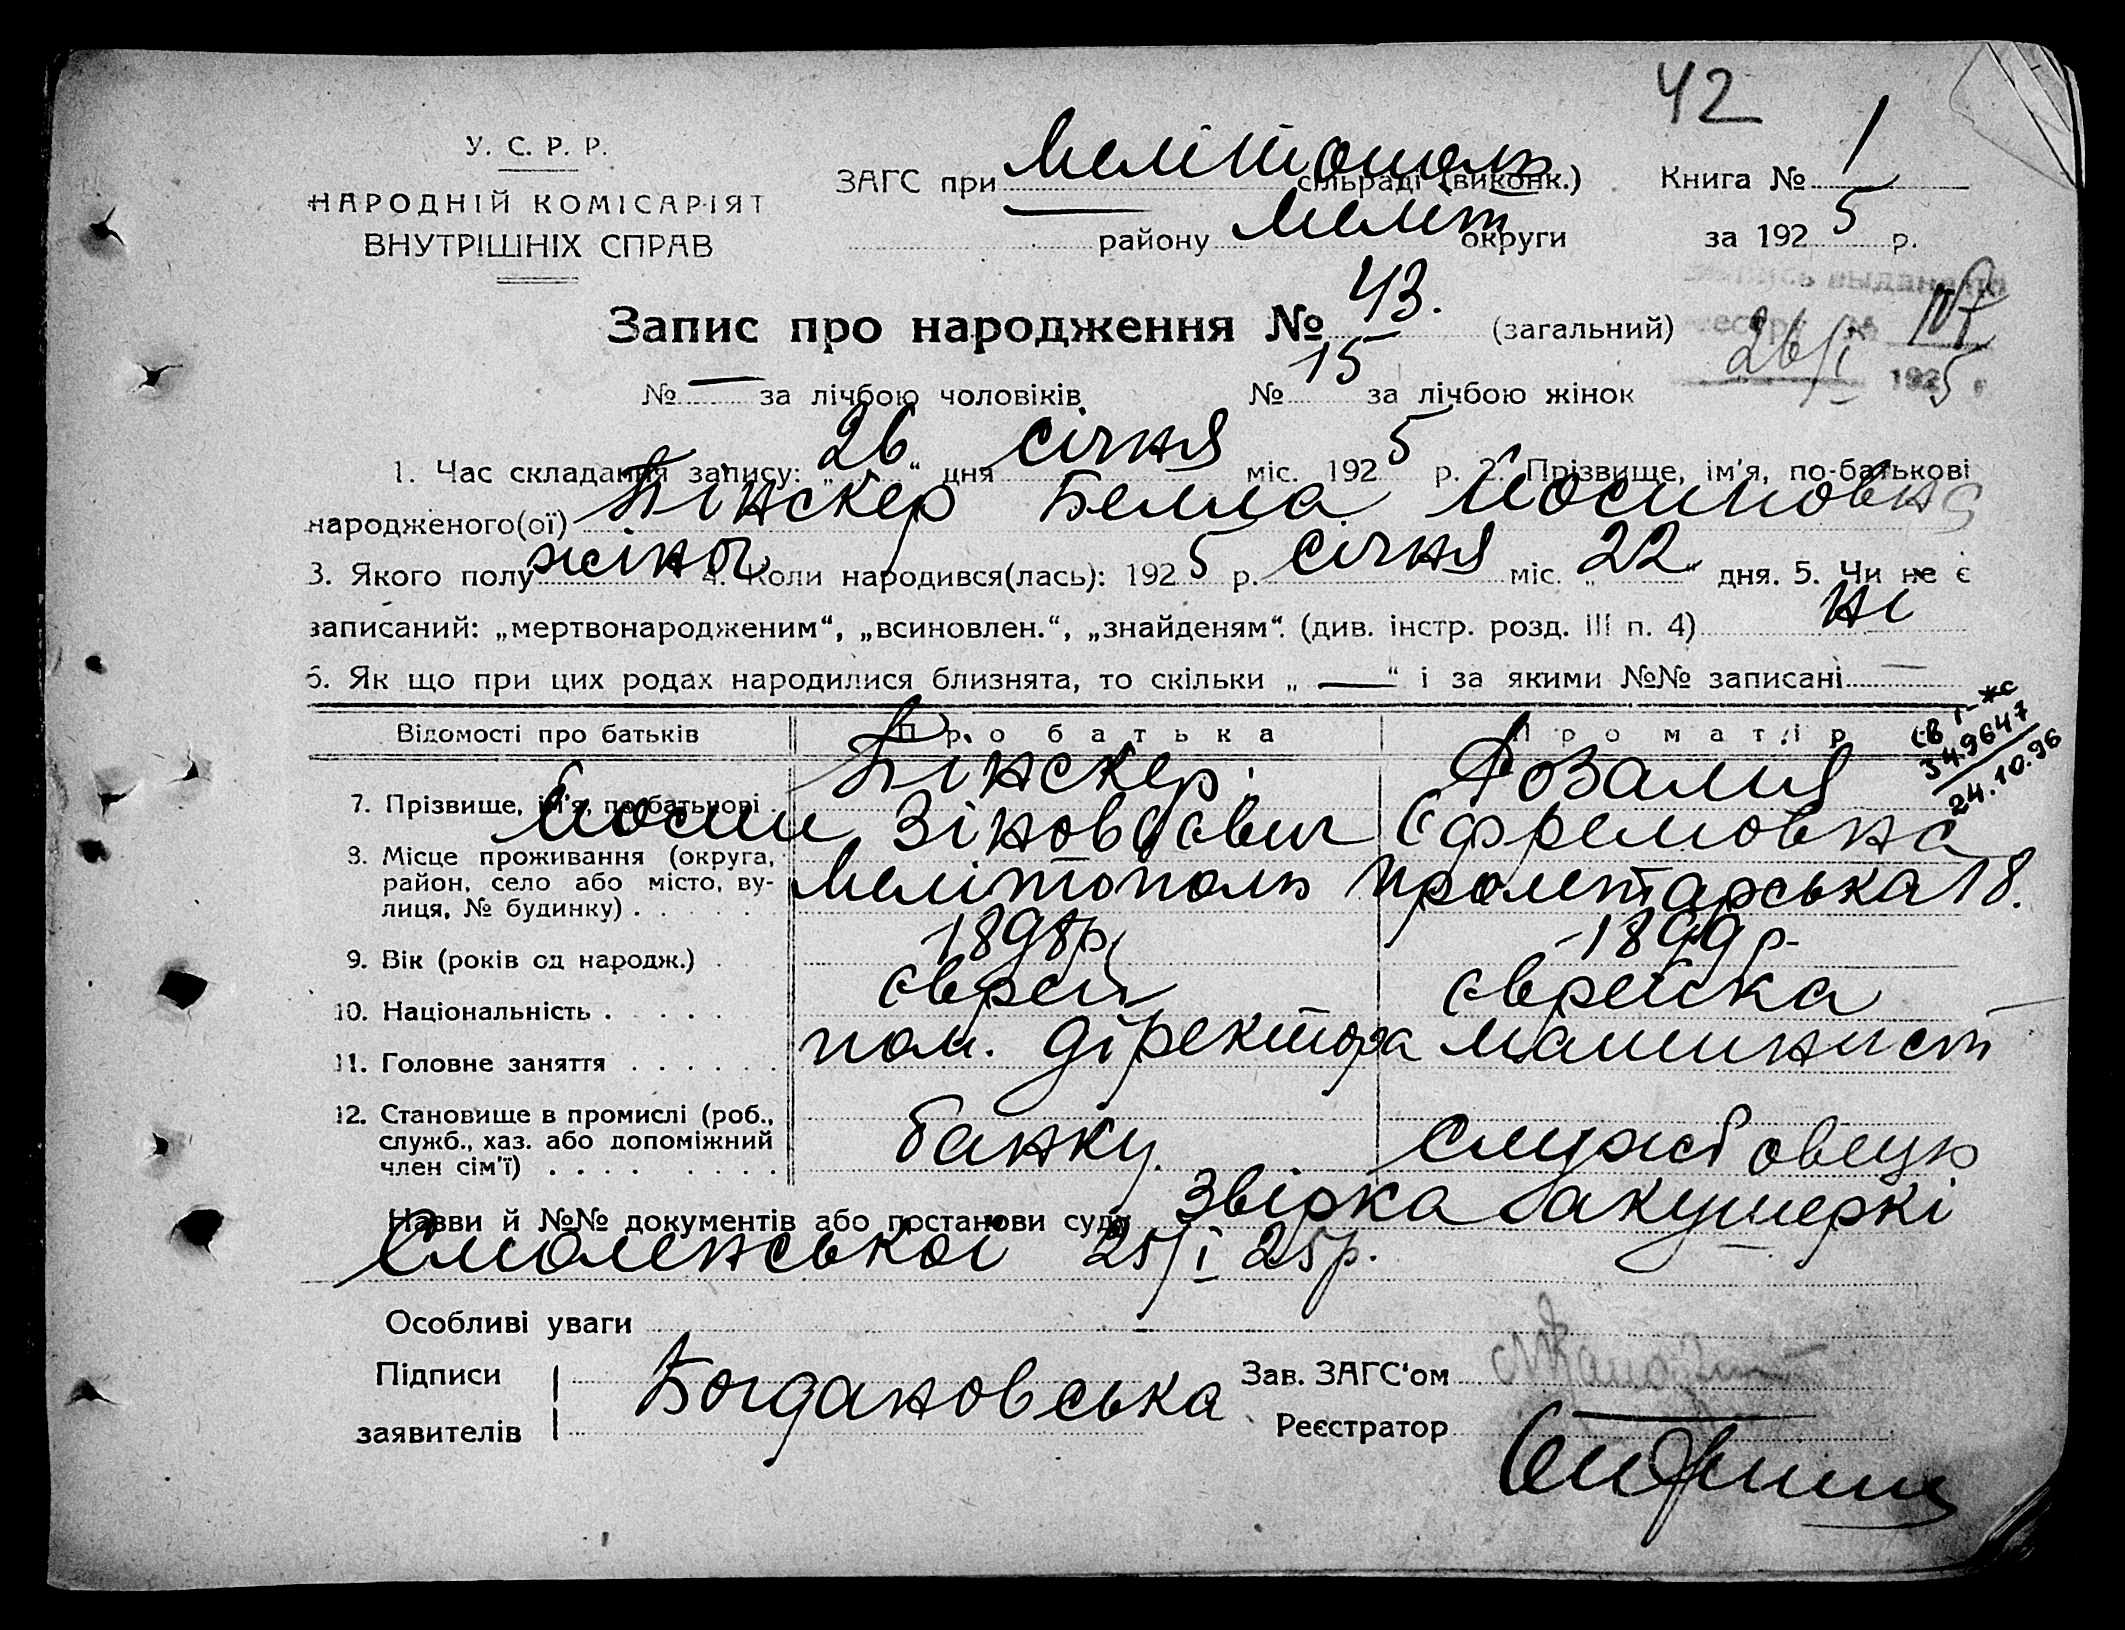 42
У. С. Р. Р.
НАРОДНІЙ КОМІСАРІЯТ
ВНУТРІШНІХ СПРАВ
ЗАГС при Мелітополь сільраді (виконк.)
району Меліт округи
Книга № 1
за 1925 р.
Запис про народження № 43. (загальний)
№ — за лічбою чоловіків № 15 за лічбою жінок
выдан
26/I 1925 г
1. Час складання запису: „26“ дня січня міс. 1925 р. 2. Прізвище, ім'я, по-батькові
народженого(ої) Пінскер Белла Йосиповна
3. Якого полу жіноч 4. Коли народився(лась): 1925 р. січня міс. „22“ дня. 5. Чи не є
записаний: „мертвонародженим“, „всиновлен.“, „знайденям“. (див. інстр. розд. III п. 4) ні
6. Як що при цих родах народилися близнята, то скільки „—“ і за якими №№ записані —
Відомості про батьків Про батька Про матір
св I-жс
349647
24.10.96
7. Прізвище, ім'я, по-батькові Пінскер Розалия
Йосип Зіновієвич Єфремовна
8. Місце проживання (округа, район, село або місто, ву-лиця, № будинку) Мелітополь Пролетарська 18.
9. Вік (років од народж.) 1898р. 1899р.
10. Національність єврей єврейка
11. Головне заняття пом. діректора машинист
12. Становище в промислі (роб., служб., хаз. або допоміжний член сім'ї) банку службовець
Назви й №№ документів або постанови суду Звірка акушеркі
Смоленської 25/I 25р.
Особливі уваги
Підписи
заявителів
Богдановська
Зав. ЗАГС'ом
Реєстратор